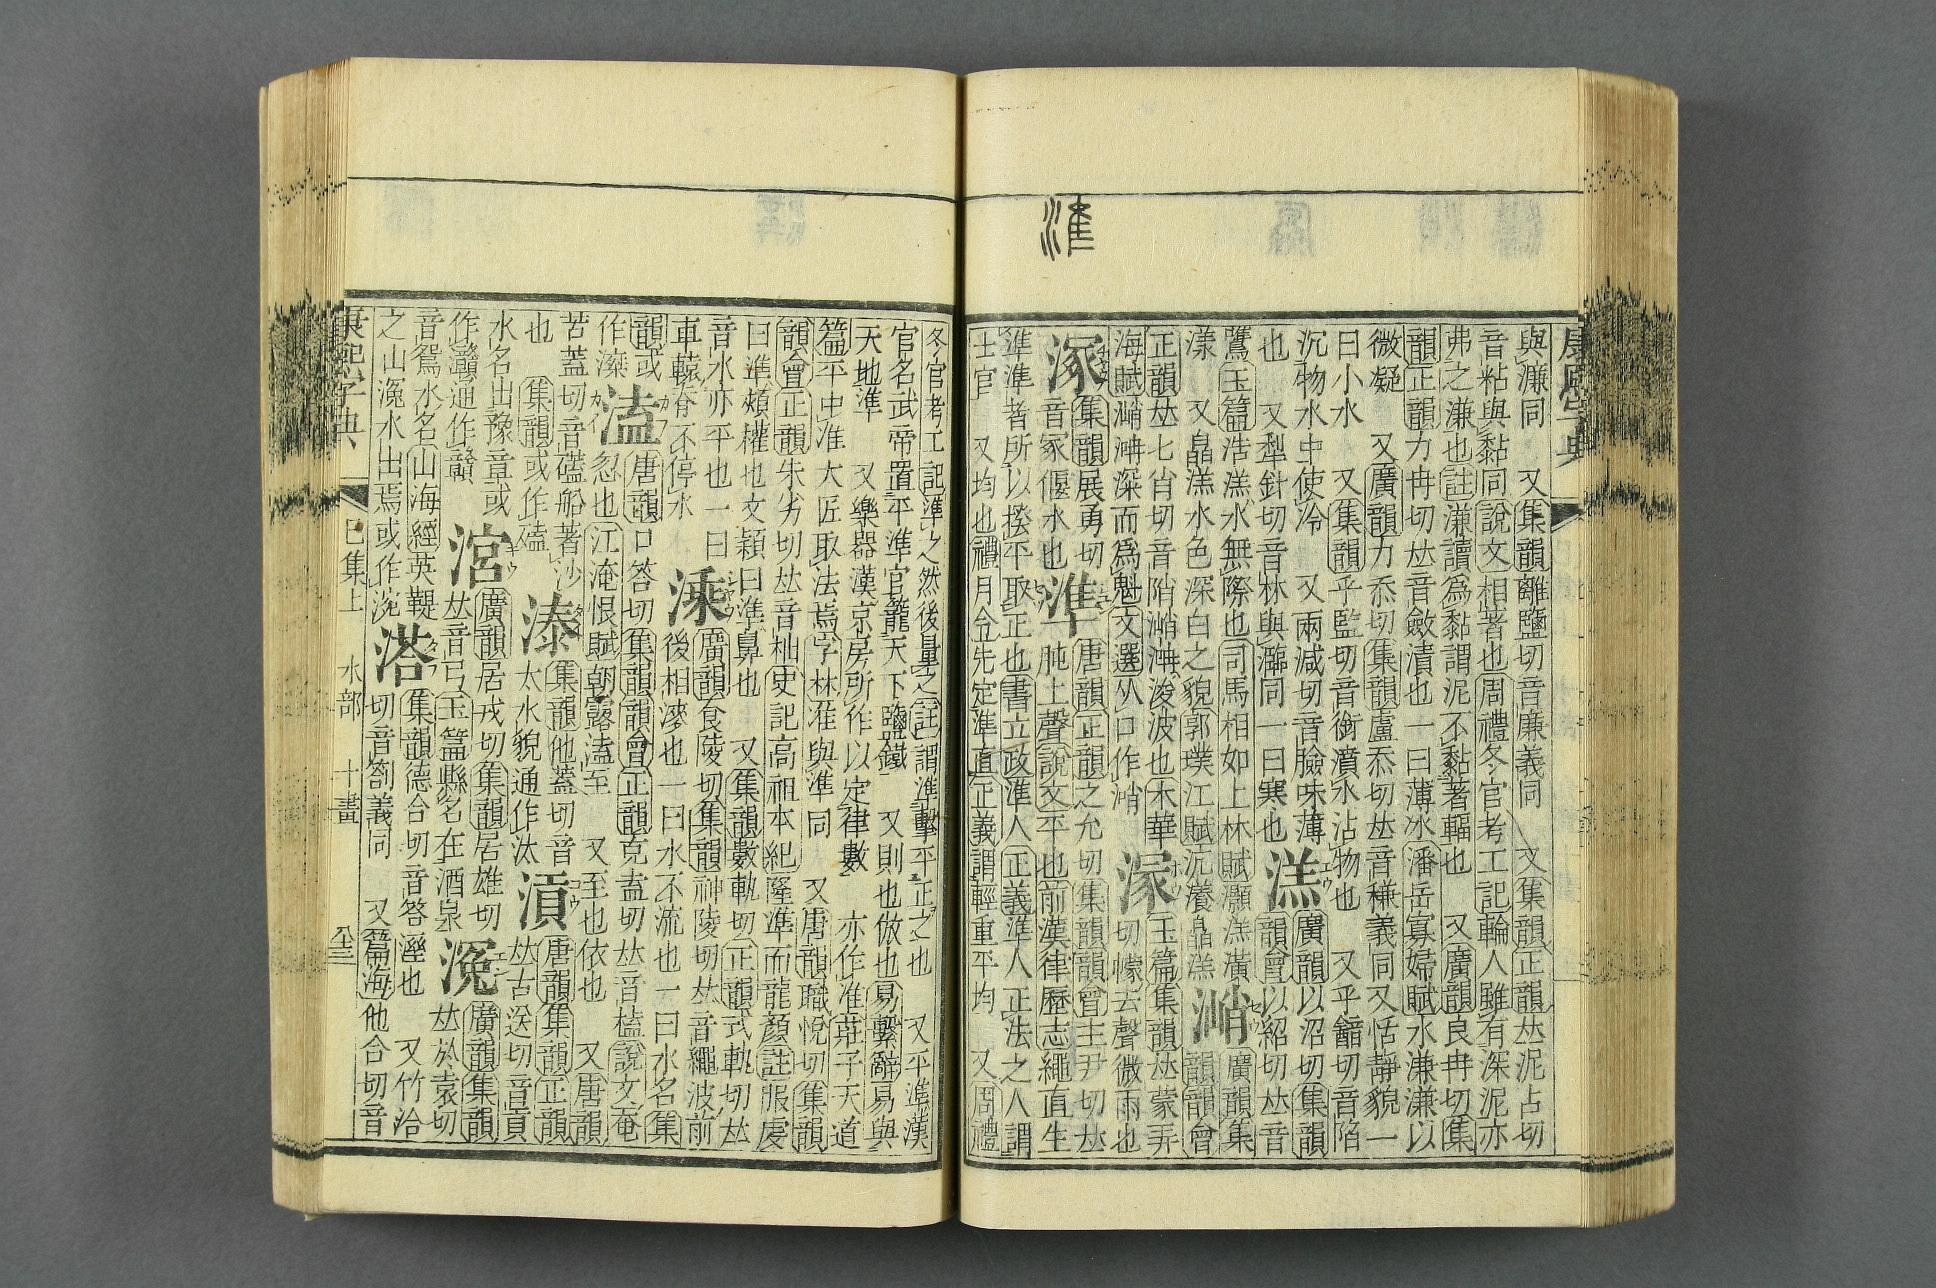 準
康熙字典
與濂同　又集韻離鹽切音廉義同　又集韻正韻𠀤泥占切
音粘與黏同說文相著也周禮冬官考工記輪人雖有深泥亦
弗之溓也註溓讀爲黏謂泥不黏著輻也　又廣韻良冉切集
韻正韻力冉切𠀤音斂漬也一曰薄冰潘岳寡婦賦水溓溓以
微凝　又廣韻力忝切集韻盧忝切𠀤音稴義同又恬靜貌一
曰小水　又集韻乎監切音銜瀆水沾物也　又乎韽切音陷
沉物水中使冷　又兩減切音臉味薄
也　又犁針切音林與潹同一曰寒也　溔　廣韻以沼切集韻
韻會以紹切𠀤音
鷕玉篇浩溔水無際也司馬相如上林賦灝溔潢
漾　又皛溔水色深白之貌郭璞江賦沆瀁皛溔　潲　廣韻集
韻韻會
正韻𠀤七肖切音陗潲浀浚波也木華
海賦潲浀深而爲魁文選从口作　溕　玉篇集韻𠀤蒙弄
切幪去聲微雨也
塚　集韻展勇切
音冢偃水也　準　唐韻正韻之允切集韻韻會主尹切𠀤
肫上聲說文平也前漢律歷志繩直生
準準者所以揆平取正也書立政準人正義準人正法之人謂
士官　又均也禮月令先定準直正義謂輕重平均　又周禮
冬官考工記準之然後量之註謂準擊平正之也　又平準漢
官名武帝置平準官籠天下鹽鐵　又則也倣也易繫辭易與
天地準　又樂器漢京房所作以定律數　亦作准莊子天道
篇平中准大匠取法焉字林准與準同　又唐韻職悅切集韻
韻會正韻朱劣切𠀤音梲史記高祖本紀隆準而龍顏註服虔
曰準頰權也文穎曰準鼻也　又集韻數軌切正韻式軌切𠀤
音水亦平也一曰
車轄脊不停水　溗　廣韻食陵切集韻神陵切𠀤音繩波前
後相凌也一曰水不流也一曰水名集
韻或
作澠　溘　唐韻口答切集韻韻會正韻克盍切𠀤音榼說文奄
忽也江淹恨賦朝露溘至　又至也依也　又唐韻
苦蓋切音磕船著沙
也　集韻或作磕　溙　集韻他蓋切音
太水貌通作汰　湏　唐韻集韻正韻
𠀤古送切音貢
水名出豫章或
作灨通作贛　涫　廣韻居戎切集韻居雄切
𠀤音弓玉篇縣名在酒泉　溛　廣韻集韻
𠀤於袁切
音鴛水名山海經英鞮
之山溛水出焉或作涴　溚　集韻德合切音答溼也　又竹洽
切音劄義同　又篇海他合切音
康熙字典　巳集上　水部　十畫